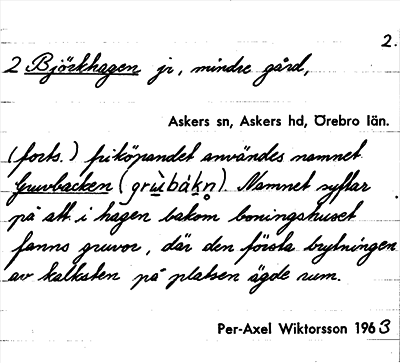 2.
2 Björkhagen jr, mindre gård,
Askers sn, Askers hd, Örebro län.
(forts.) friköpandet användes namnet
Gruvbacken (grùbákn̥). Namnet syftar
på att i hagen bakom boningshuset
fanns gruvor, där den första brytningen
av kalksten på platsen ägde rum.
Per-Axel Wiktorsson 1963